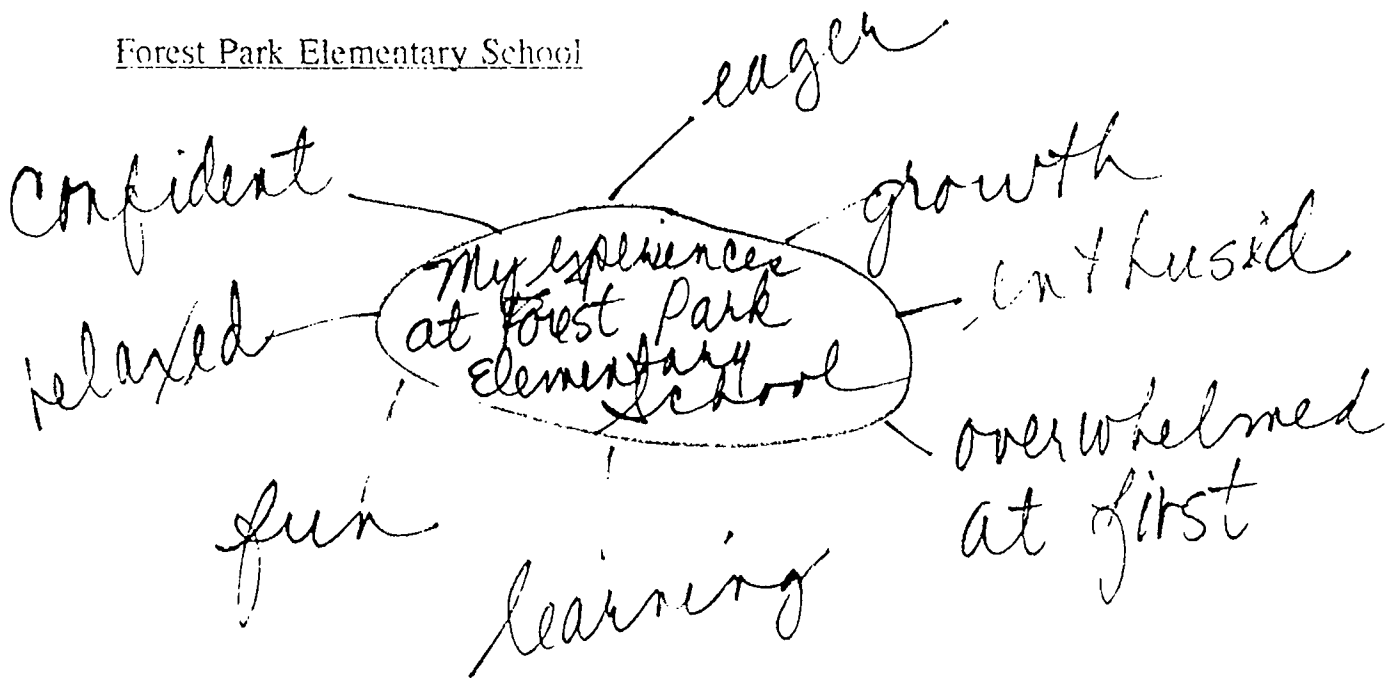 Forest Park Elementary School
eager
confident
growth
My experiences
at Forest Park
Elementary
School
inthusid
relaxed
overwhelmed
at first
fun
learning